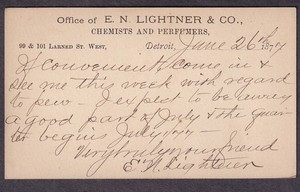 Office of E. N. LIGHTNER & CO.,
CHEMISTS AND PERFUMERS,
99 & 101 LARNED ST. WEST,
Detroit, June 26th 1877
If convenient come in &
see me this week with regard
to pew - I expect to be away
a good part of July & the quar
ter begins July
Very truly your friend
E N Lightner